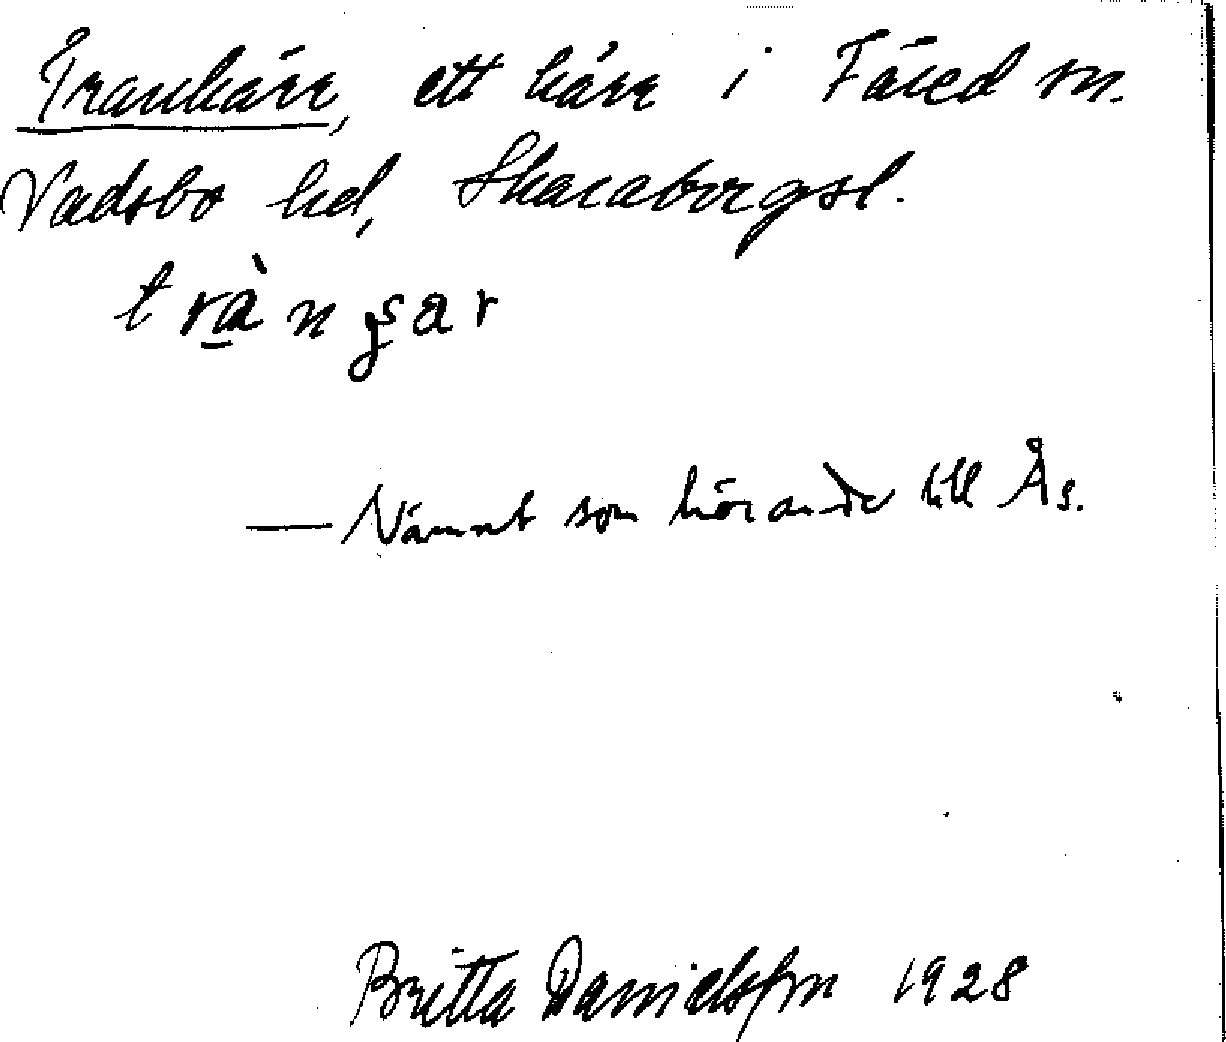 Trankärr, ett kärr i Färed sn.
Vadsbo hd, Skaraborgsl.
— Nämnt som hörande till Ås.
Britta Danielsson 1928